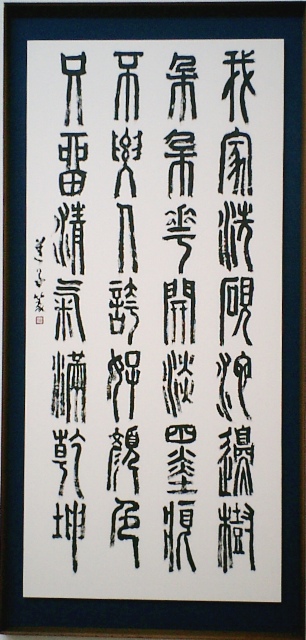 我家洗硯池邊樹
朵朵花開淡墨痕
不要人誇好顏色
只留清氣滿乾坤